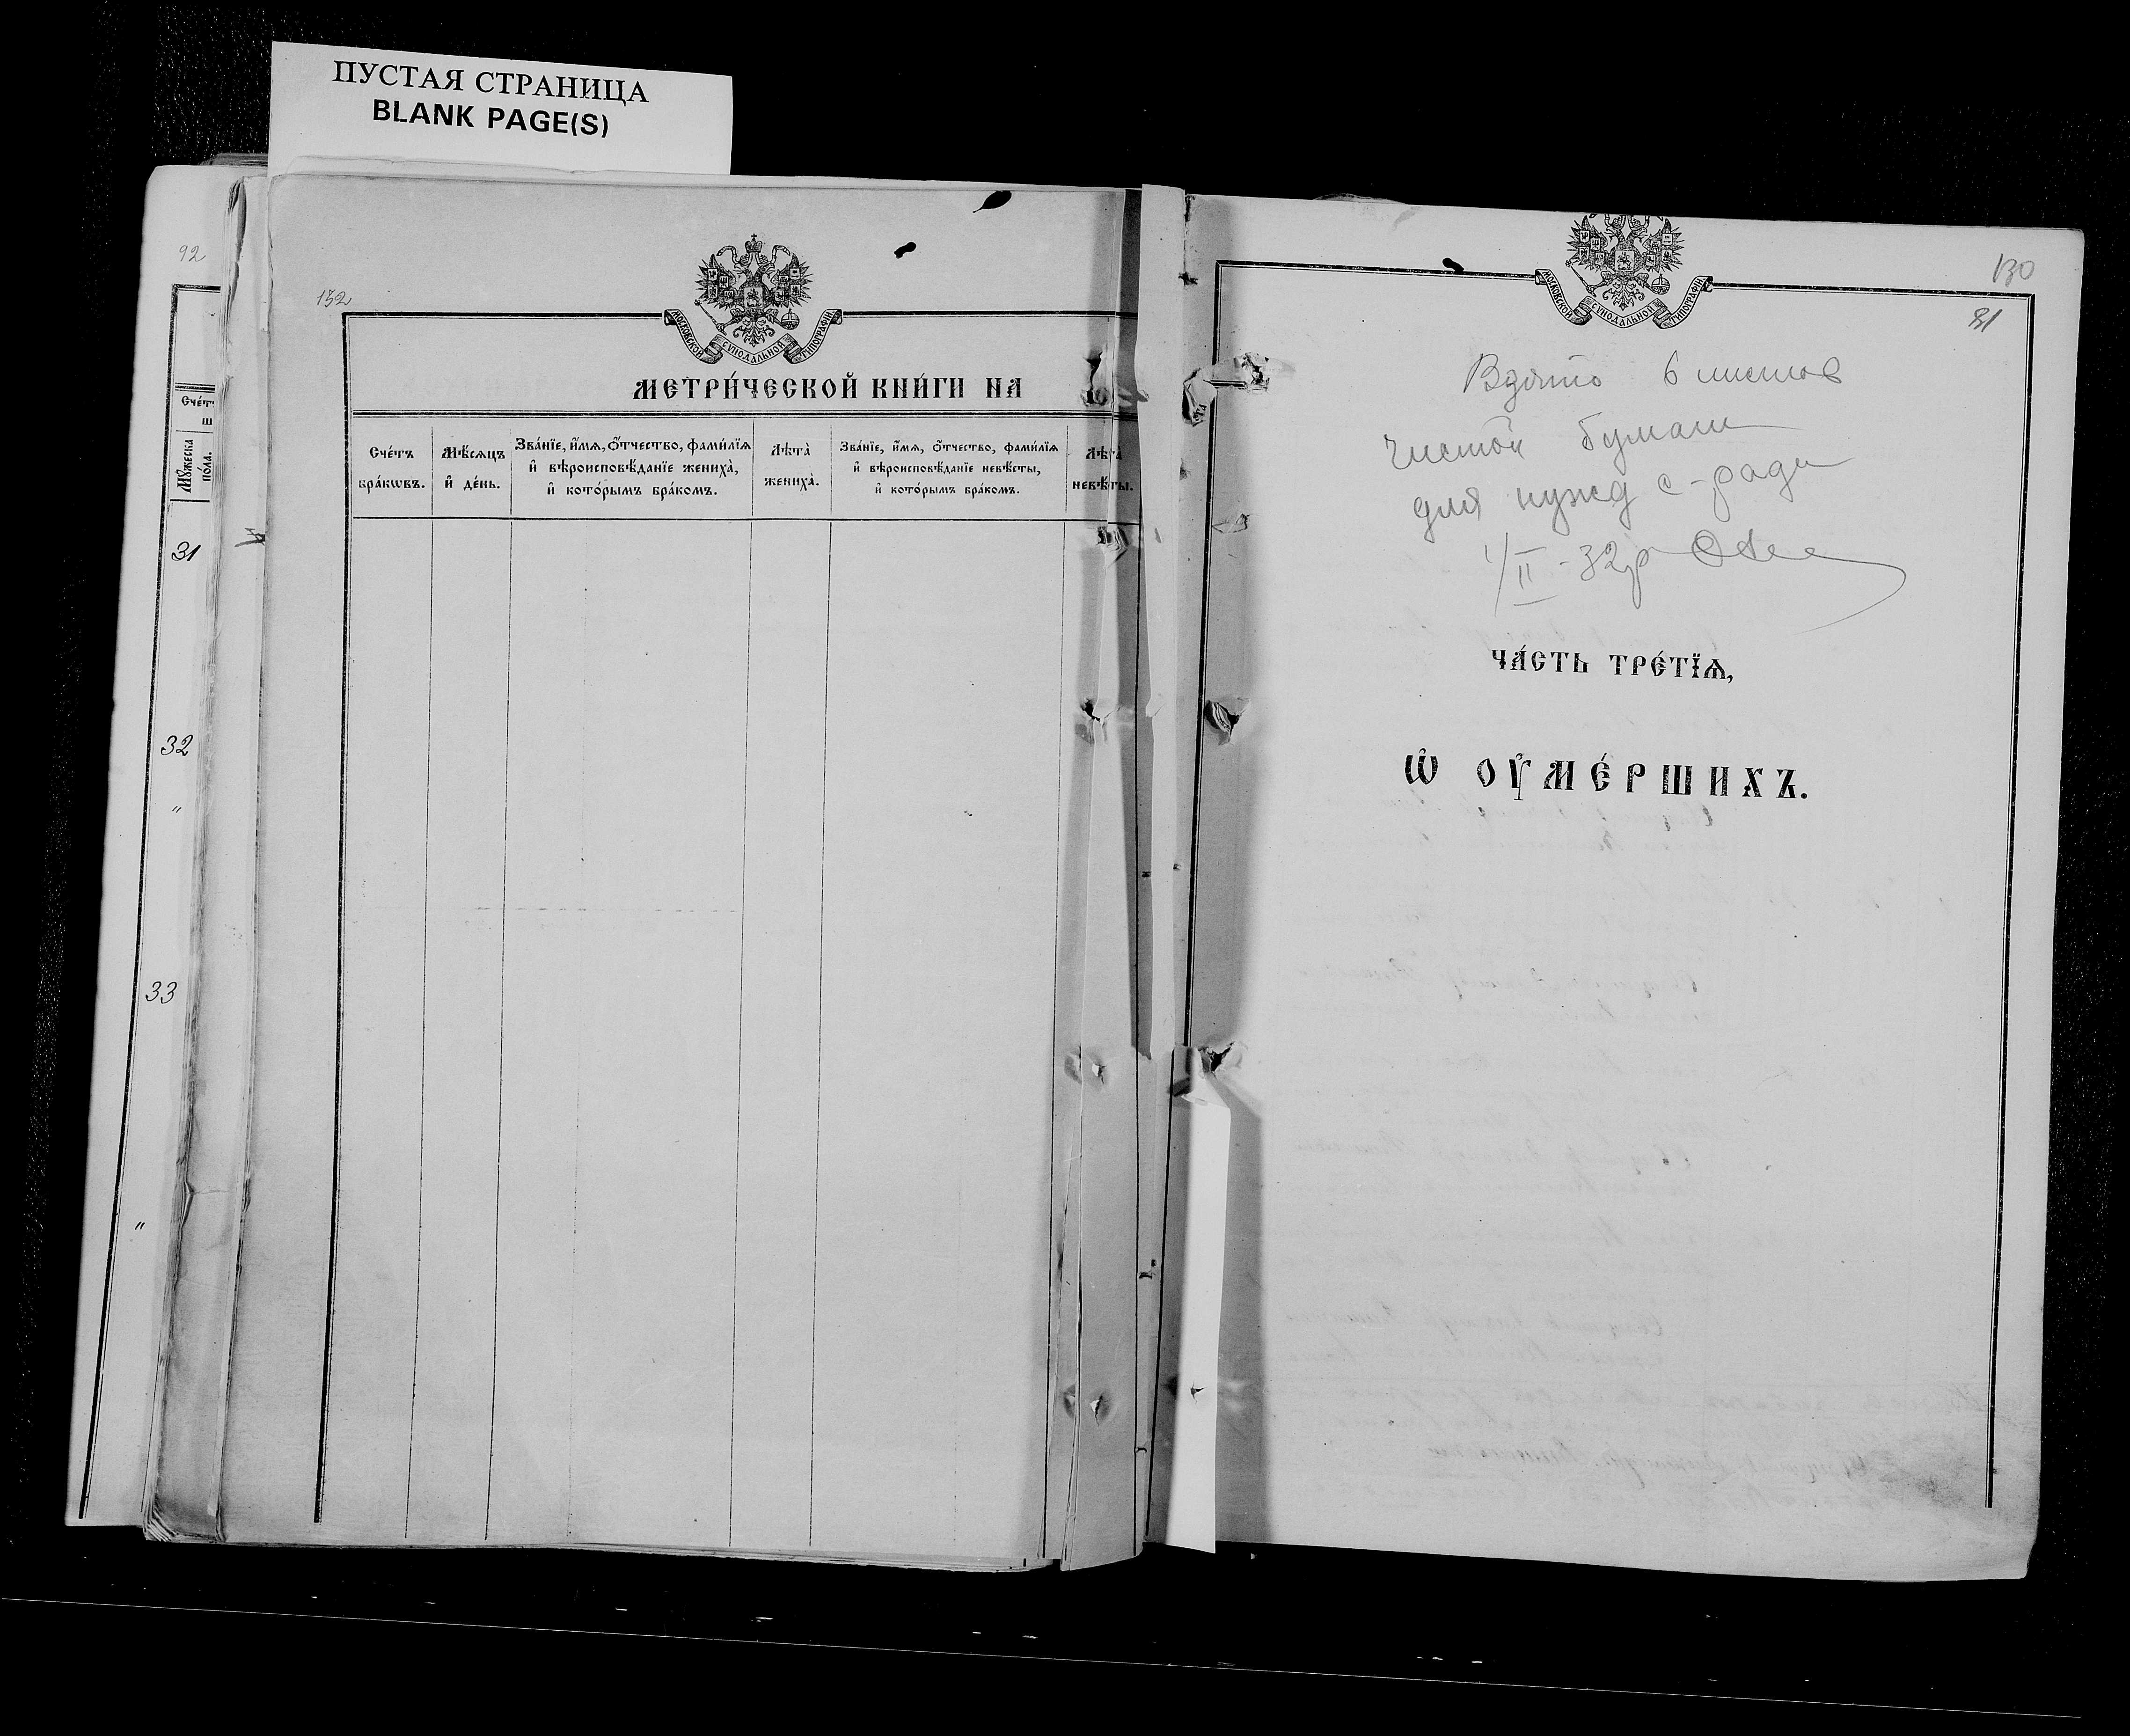 ПУСТАЯ СТРАНИЦА
BLANK PAGE(S)
92
Сче́т
ш
Мꙋ́жеска
по́ла.
31
32
"
33
"
132
МОСКОВСКОЙ СѴНОДАЛЬНОЙ ТИПОГРАФІИ
МЕТРИ́ЧЕСКОЙ КНИ́ГИ НА
Сче́тъ
бра́кѡвъ.
Мѣ́сяцъ
и҆ де́нь.
Зва́нїе, и҆́мя, ѻ҆́тчество, фами́лїя
и҆ вѣроисповѣ́данїе жениха̀,
и҆ кото́рымъ бра́комъ.
Лѣта̀
жениха̀.
Зва́нїе, и҆́мя, ѻ҆́тчество, фами́лїя
и҆ вѣроисповѣ́данїе невѣ́сты,
и҆ кото́рымъ бра́комъ.
Лѣта̀
невѣ́сты.
МОСКОВСКОЙ СѴНОДАЛЬНОЙ ТИПОГРАФІИ
130
81
Взято 6 листов
чистой бумаги
для нужд с-ради
1/II-32р
ЧА́СТЬ ТРЕ́ТЇѦ,
Ѡ҆ ОУ҆МЕ́РШИХЪ.